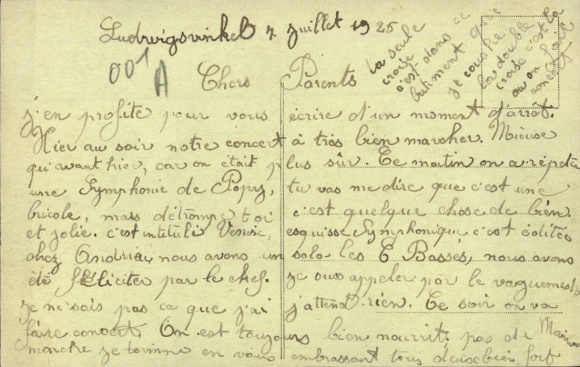 Ludwigsvinkel 7 Juillet 1925
001
A
la seule
croix
c'est dans ce
batiment que
je couche
la double
croix c'est la
ou on fait
concert
Chers Parents
j'en profite pour vous écrire d'un moment d'arrêt.
Hier au soir notre concert a très bien marcher. Mieuse
qu'avant hier, car on était plus sûr. Ce matin on a répéta
une Symphonie de Popy, tu vas me dire que c'est une
bricole, mais détrompe toi c'est quelque chose de bien
et jolie. c'est intitulés Venise, esquisse Symphonique c'est éditée
chez Andrieu, nous avons un solo les E Basses, nous avons
été féliciter par le chef. je ous appeler par le vaguemes
je ne sais pas ce que j'ai j'attend rien. Ce soir on va
faire concert. On est toujours bien nourrit, pas de
marche je termine en vous embrassant tous deuse bien fort